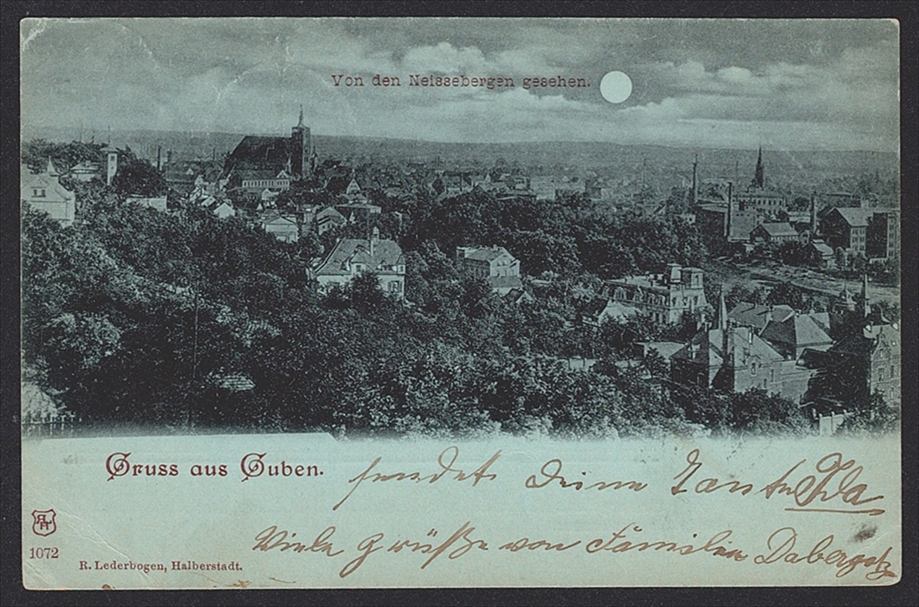 Von den Neissebergen gesehen.
Gruss aus Guben.
sendet Deine Tante Ida
Viele Grüße von Familie Dabergotz
1072
R. Lederbogen, Halberstadt.